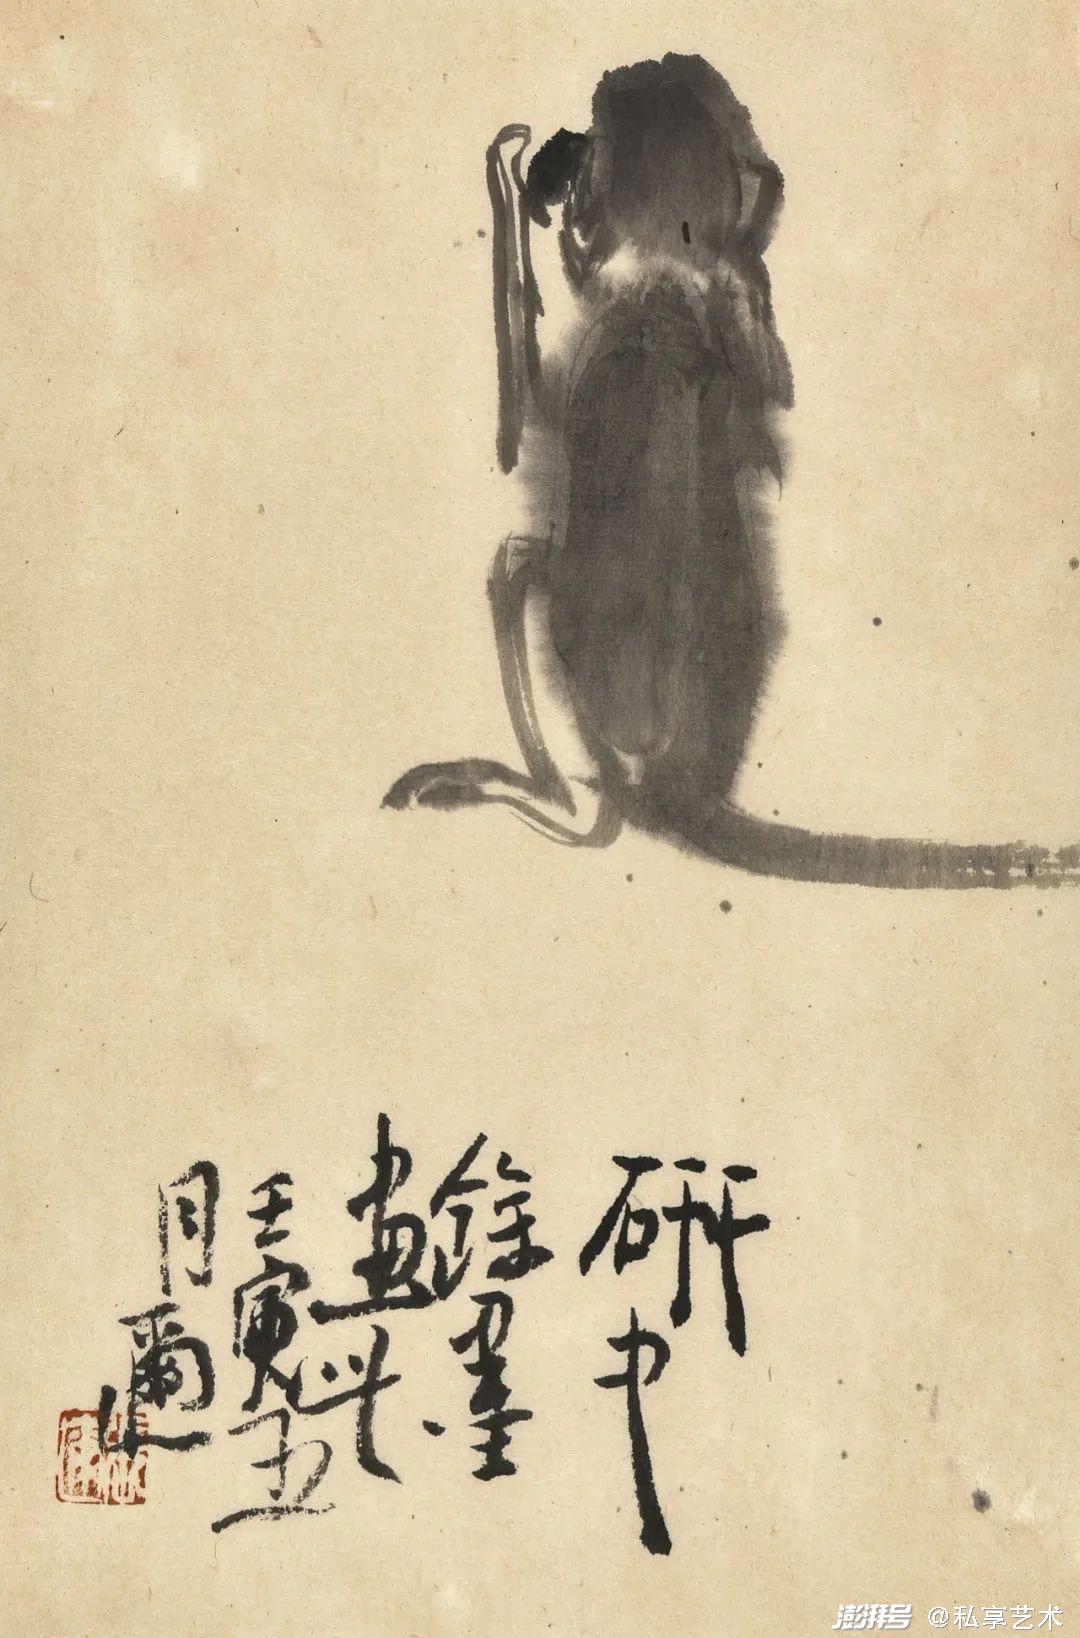 研中
餘墨
畫此
壬寅五
月爾
澎湃号 @私享艺术